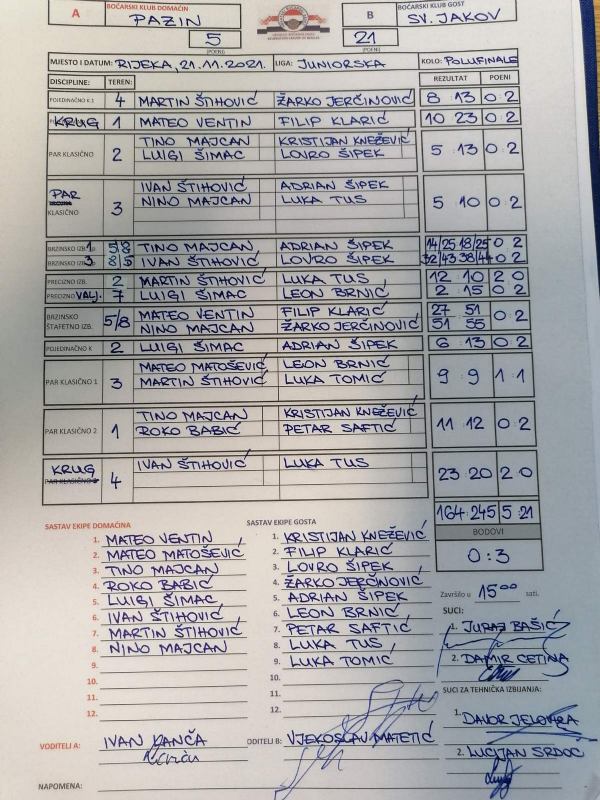 A BOĆARSKI KLUB DOMAĆIN PAZIN B BOĆARSKI KLUB GOST SV. JAKOV
5 21
(POENI) (POENI)
MJESTO I DATUM: RIJEKA, 21.11.2021. LIGA: JUNIORSKA KOLO: POLUFINALE
DISCIPLINE: TEREN: REZULTAT POENI
POJEDINAČNO K 1 4 MARTIN ŠTIHOVIĆ ŽARKO JERČINOVIĆ 8 13 0 2
KRUG 1 MATEO VENTIN FILIP KLARIĆ 10 23 0 2
PAR KLASIČNO 2 TINO MAJCAN KRISTIJAN KNEŽEVIĆ 5 13 0 2
LUIGI ŠIMAC LOVRO ŠIPEK
PAR KLASIČNO 3 IVAN ŠTIHOVIĆ ADRIAN ŠIPEK 5 10 0 2
NINO MAJCAN LUKA TUS
BRZINSKO IZB. 1 5/8 TINO MAJCAN ADRIAN ŠIPEK 14/25 18/25 0 2
BRZINSKO IZB. 3 8/5 IVAN ŠTIHOVIĆ LOVRO ŠIPEK 32/43 38/44 0 2
PRECIZNO IZB. 2 MARTIN ŠTIHOVIĆ LUKA TUS 12 10 2 0
PRECIZNO VALJ. 7 LUIGI ŠIMAC LEON BRNIĆ 2 15 0 2
BRZINSKO ŠTAFETNO IZB. 5/8 MATEO VENTIN FILIP KLARIĆ 27 51 0 2
NINO MAJCAN ŽARKO JERČINOVIĆ 51 55
POJEDINAČNO K 2 LUIGI ŠIMAC ADRIAN ŠIPEK 6 13 0 2
PAR KLASIČNO 1 3 MATEO MATOŠEVIĆ LEON BRNIĆ 9 9 1 1
MARTIN ŠTIHOVIĆ LUKA TOMIĆ
PAR KLASIČNO 2 1 TINO MAJCAN KRISTIJAN KNEŽEVIĆ 11 12 0 2
ROKO BABIĆ PETAR SAFTIĆ
KRUG 4 IVAN ŠTIHOVIĆ LUKA TUS 23 20 2 0
164 245 5 21
SASTAV EKIPE DOMAĆINA SASTAV EKIPE GOSTA BODOVI
1. MATEO VENTIN 1. KRISTIJAN KNEŽEVIĆ 0:3
2. MATEO MATOŠEVIĆ 2. FILIP KLARIĆ
3. TINO MAJCAN 3. LOVRO ŠIPEK
4. ROKO BABIĆ 4. ŽARKO JERČINOVIĆ Završilo u 15⁰⁰ sati.
5. LUIGI ŠIMAC 5. ADRIAN ŠIPEK
6. IVAN ŠTIHOVIĆ 6. LEON BRNIĆ SUCI:
7. MARTIN ŠTIHOVIĆ 7. PETAR SAFTIĆ 1. JURAJ BAŠIĆ
8. NINO MAJCAN 8. LUKA TUS
9. 9. LUKA TOMIĆ 2. DAMIR CETINA
10. 10.
11. 11. SUCI ZA TEHNIČKA IZBIJANJA:
12. 12. 1. DAVOR JELOVICA
VODITELJ A: IVAN KANČA ODITELJ B: VJEKOSLAV MATETIĆ
2. LUCIJAN SRDOČ
NAPOMENA: